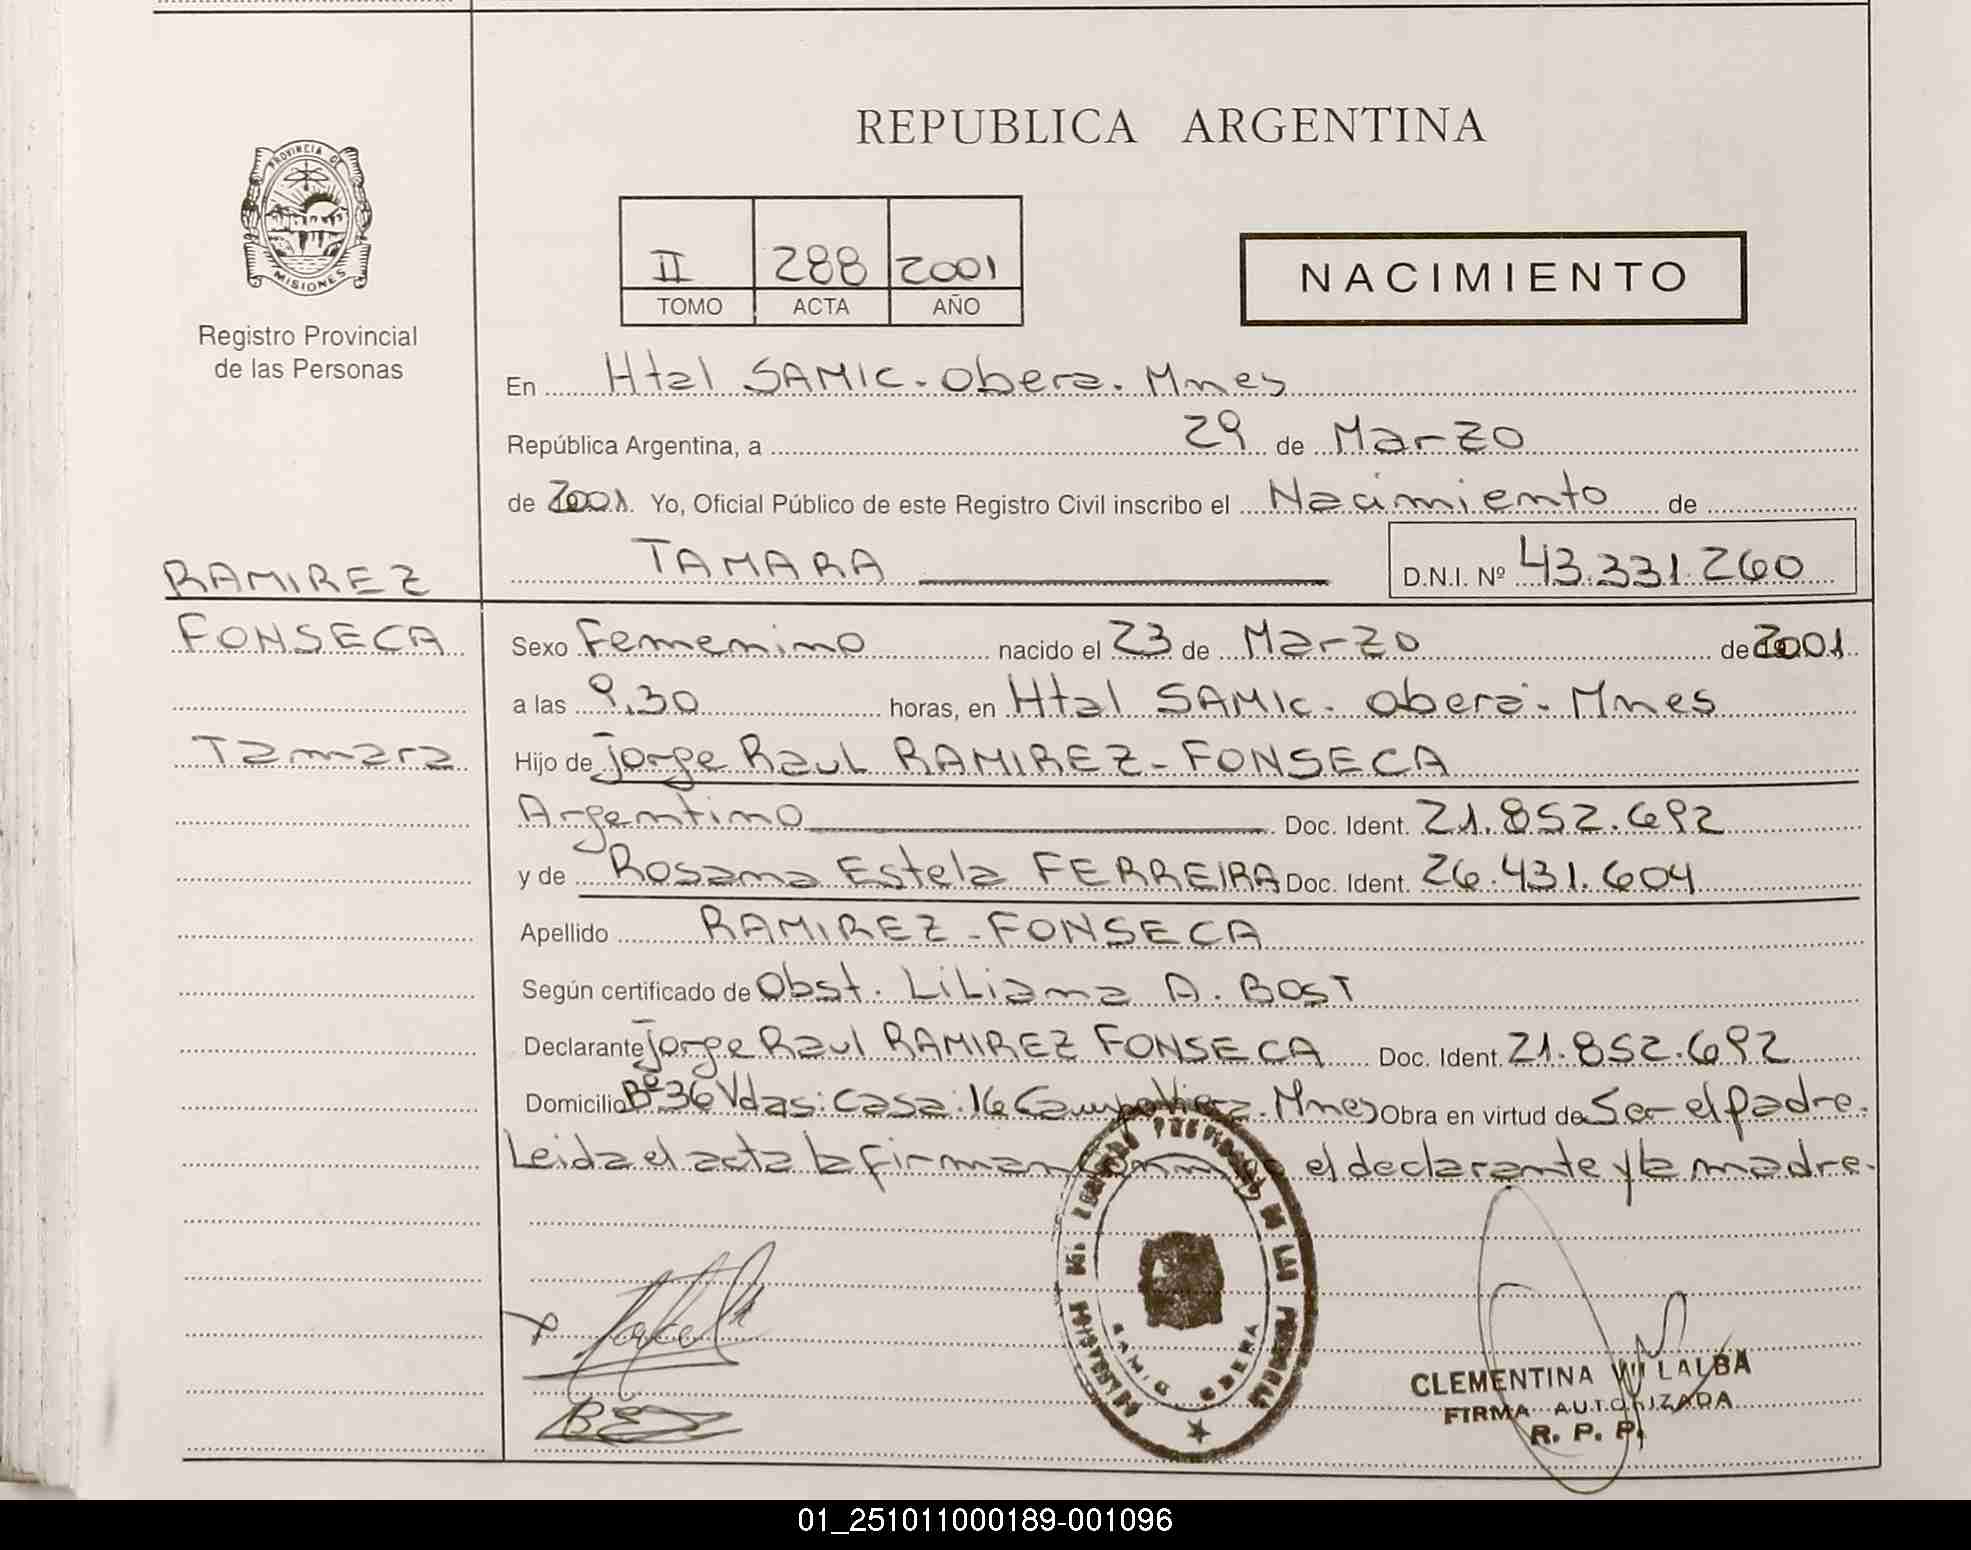 REPUBLICA ARGENTINA
PROVINCIA DE
MISIONES
Registro Provincial
de las Personas
II 288 2001
TOMO ACTA AÑO
NACIMIENTO
En Htal SAMIC. Obera. Mnes
República Argentina, a 29 de Marzo
de 2001. Yo, Oficial Público de este Registro Civil inscribo el Nacimiento de
TAMARA D.N.I. Nº 43.331.260
RAMIREZ
FONSECA
Tamara
Sexo Femenino nacido el 23 de Marzo de 2001
a las 9,30 horas, en Htal SAMIC. Obera. Mnes
Hijo de Jorge Raul RAMIREZ-FONSECA
Argentino Doc. Ident. 21.852.692
y de Rosana Estela FERREIRA Doc. Ident. 26.431.604
Apellido RAMIREZ-FONSECA
Según certificado de Obst. Liliana A. BOST
Declarante Jorge Raul RAMIREZ FONSECA Doc. Ident. 21.852.692
Domicilio Bº 36 Vdas: Casa: 16 Campo Viera. Mnes Obra en virtud de Ser el padre.
Leida el acta la firman el declarante y la madre.
DE LAS
SAMIC OBERA
CLEMENTINA VILLALBA
FIRMA AUTORIZADA
R. P. P.
01_251011000189-001096